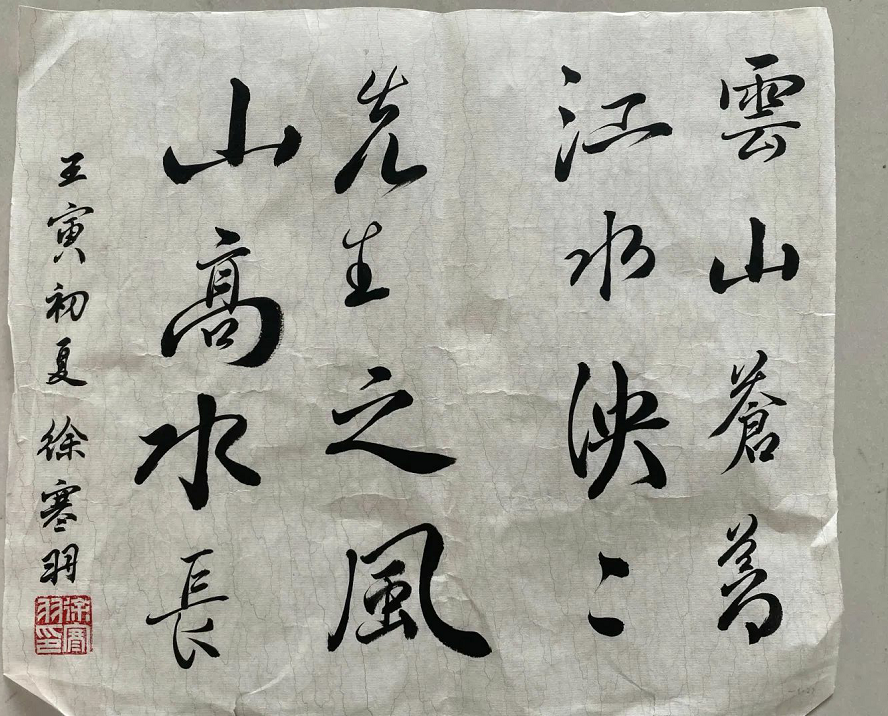 雲山蒼蒼
江水泱〻
先生之風
山髙水長
壬寅初夏 徐寒羽
徐寒羽印